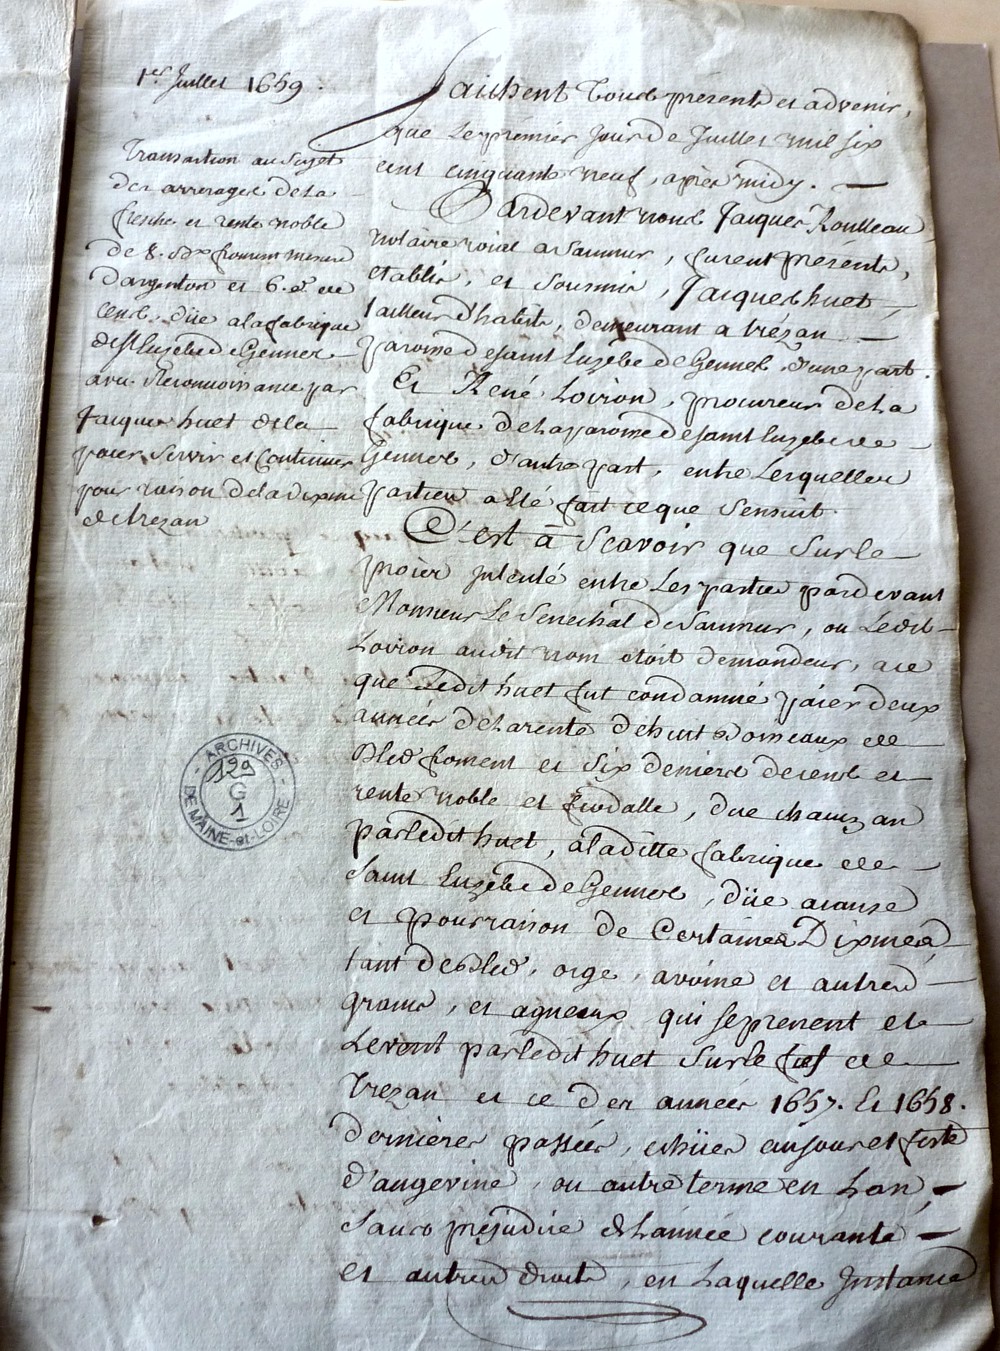 1er Juillet 1659.
Transaction au Sujet
des arrerages de la
fresche et rente noble
de 8. Bx froment mesure
d'argenton et 6. d. de
cens, düe a la fabrique
de St Euzebe de Gennes
avec Reconnoissance par
Jacques huet de la
paier, Servir et Continuer
pour raison de la dixme
de trezan
Saichent tous présents et advenir,
que le premier jour de Juillet mil six
cent cinquante neuf, après midy.
Pardevant nous Jacques Roulleau
notaire roial a Saumur, furent présents,
etablis, et soumis, Jacques huet
tailleur d'habits, demeurant a trézan
paroisse de saint Euzébe de Gennes, d'une part.
Et René Loirion, procureur de la
fabrique de la paroisse de saint Euzebe de
Gennes, d'autre part, entre lesquelles
parties a été fait ce que sensuit.
C'est à Scavoir que sur le
procès intenté entre les parties pardevant
Monsieur le Senechal de Saumur, ou ledit
Loirion audit nom étoit demandeur, a ce
que ledit huet fut condamné paier deux
années de la rente de huit Boisseaux de
Bled froment et six deniers de cens et
rente noble et feodalle, due chacun an
par ledit huet, a la ditte fabrique de
Saint Euzébe de Gennes, düe a cause
et pour raison de Certaines Dixmes,
tant de Bled, orge, avoine et autres
grains, et agneaux qui se prenent et
Levent par ledit huet sur le fief de
Trezan et ce des années 1657. Et 1658.
dernieres passées, échües au jour et feste
d'angevine, ou autre terme en Lan,
sans préjudice de L'année courante
et autres droits, en Laquelle Instance
ARCHIVES
DE MAINE-et-LOIRE
129
G
1